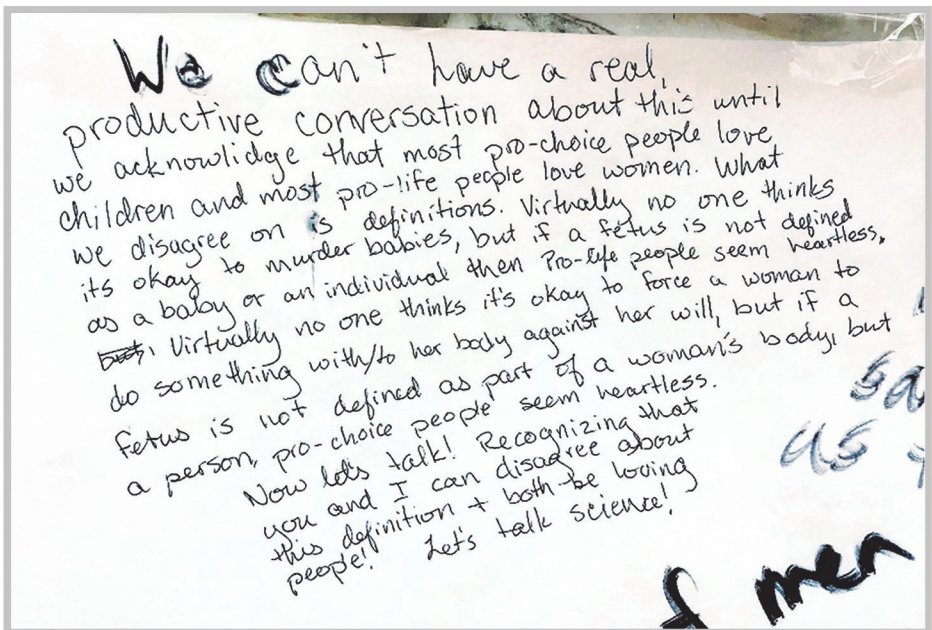 We can't have a real,
productive conversation about this until
we acknowlidge that most pro-choice people love
children and most pro-life people love women. What
we disagree on is definitions. Virtually no one thinks
its okay to murder babies, but if a fetus is not defined
as a baby or an individual then Pro-life people seem heartless.
Virtually no one thinks it's okay to force a woman to
do something with/to her body against her will, but if a
fetus is not defined as part of a woman's body, but
a person, pro-choice people seem heartless.
Now let's talk! Recognizing that
you and I can disagree about
this definition + both be loving
people! Let's talk science!
sa
as
f men